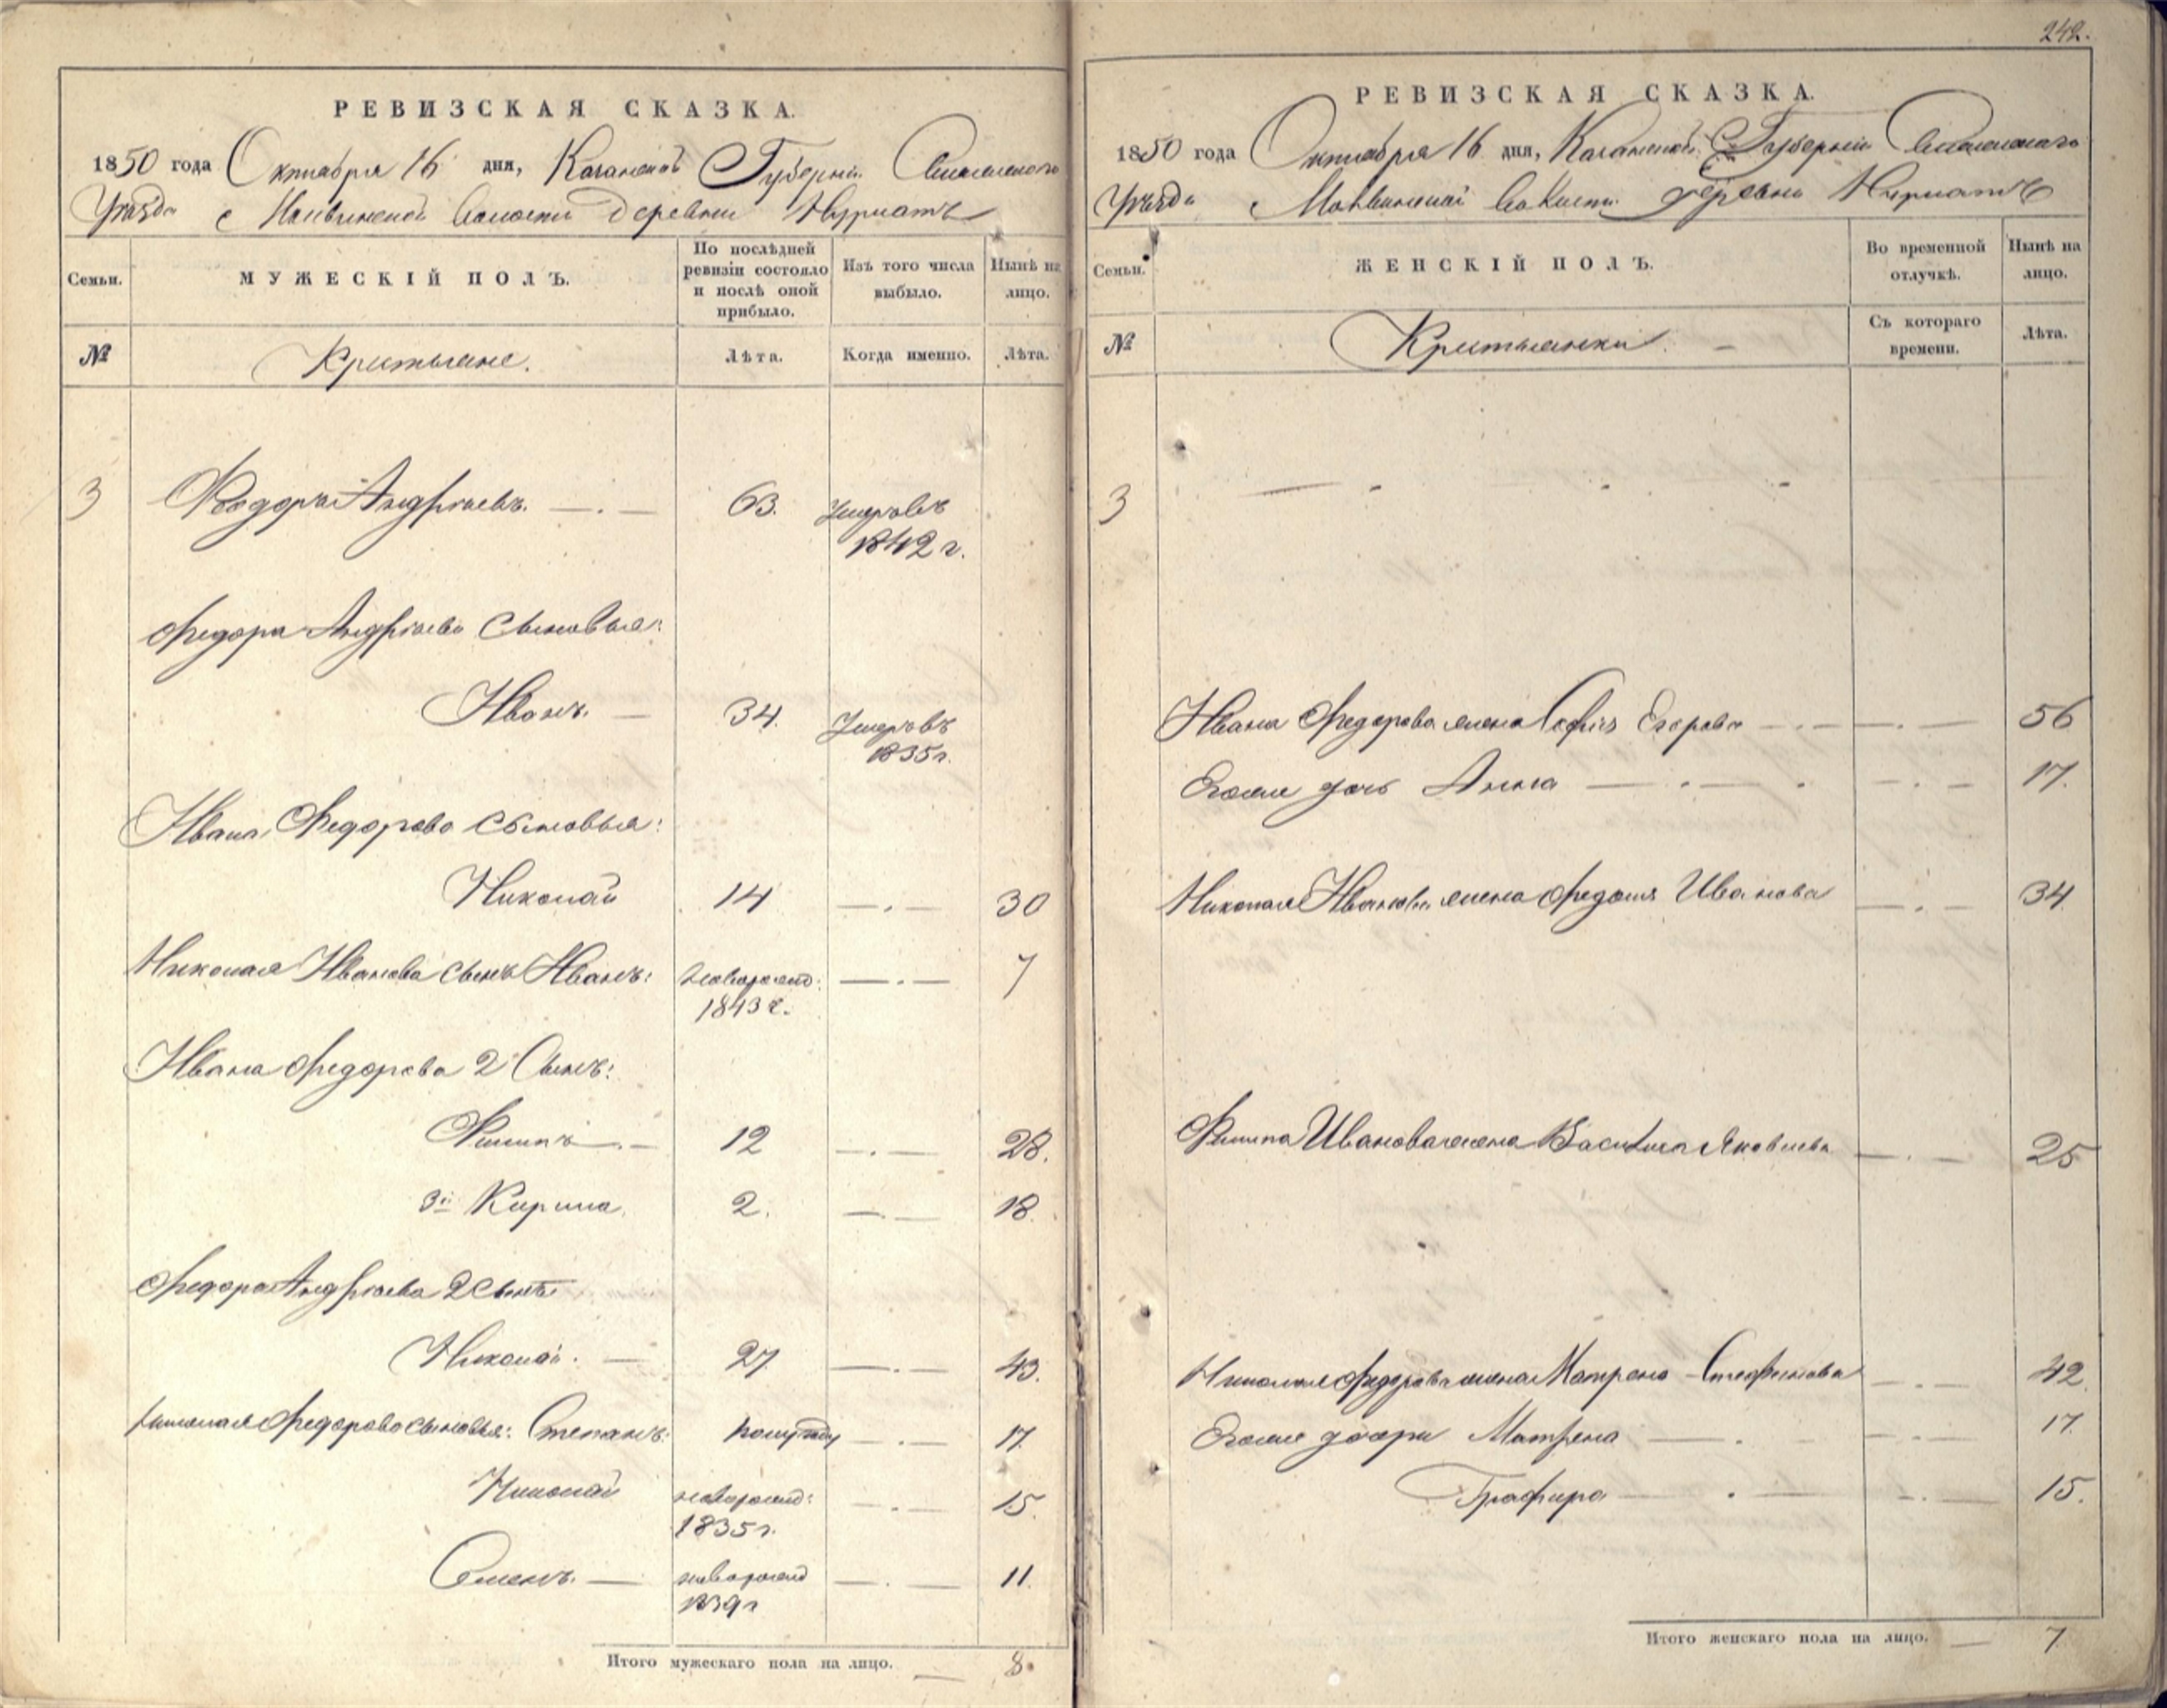 242.
РЕВИЗСКАЯ СКАЗКА.
1850 года Октября 16 дня, Казанской Губернiи
Уѣзда Волости деревни Нурматъ
Семьи. МУЖЕСКIЙ ПОЛЪ. По послѣдней ревизiи состояло и послѣ оной прибыло. Изъ того числа выбыло. Нынѣ на лицо.
№ Крестьяне. Лѣта. Когда именно. Лѣта.
3 Федоръ Андрѣевъ. 63. Умеръ въ
1842 г.
Федора Андрѣева сыновья:
Иванъ. 34. Умеръ въ
1835 г.
Ивана Федорова сыновья:
Николай 14 30
Николая Иванова сынъ Иванъ: новорожд: 7
1843 г.
Ивана Федорова 2 Сынъ:
Филипъ 12 28.
3й Кирила. 2. 18.
Федора Андрѣева 2 сынъ
Николай. 27 43.
Николая Федорова сыновья: Степанъ: полугоду 17.
Николай новорожд: 15.
1835 г.
Семенъ. новорожд 11.
1839 г
Итого мужескаго пола на лицо. 8.
РЕВИЗСКАЯ СКАЗКА.
1850 года Октября 16 дня, Казанской Губернiи
Уѣзда Волости деревни Нурматъ
Семьи. ЖЕНСКIЙ ПОЛЪ. Во временной отлучкѣ. Нынѣ на лицо.
№ Крестьянки. Съ котораго времени. Лѣта.
3
Ивана Федорова жена Софiя Егорова 56
Егоже дочь Анна 17.
Николая Иванова жена Федосiя Иванова 34
Филипа Иванова жена Василиса Яковлева 25
Николая Федорова жена Матрена Стефанова 42
Егоже дочери Матрена 17.
Графира 15.
Итого женскаго пола на лицо. 7